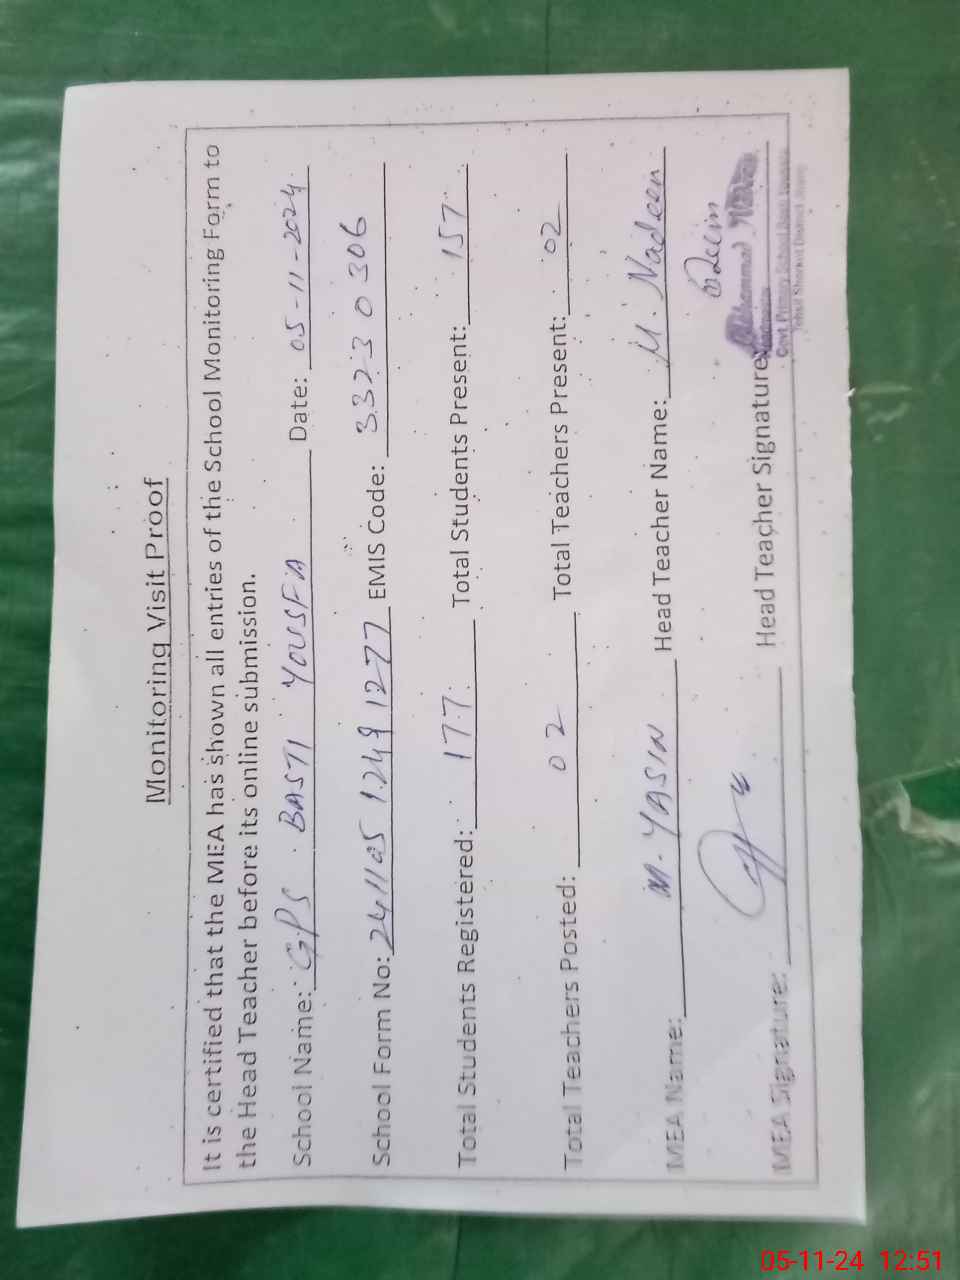 Monitoring Visit Proof
It is certified that the MEA has shown all entries of the School Monitoring Form to
the Head Teacher before its online submission.
School Name: GPS BASTI YOUSFIA Date: 05-11-2024
School Form No: EMIS Code: 33230306
Total Students Registered: 177 Total Students Present: 157
Total Teachers Posted: 02 Total Teachers Present: 02
MEA Name: M. YASIN Head Teacher Name: M. Nadeem
MEA Signature: Head Teacher Signature
Muhammad
Govt. Primary School Basti
Tehsil Shorkot District Jhang
05-11-24 12:51